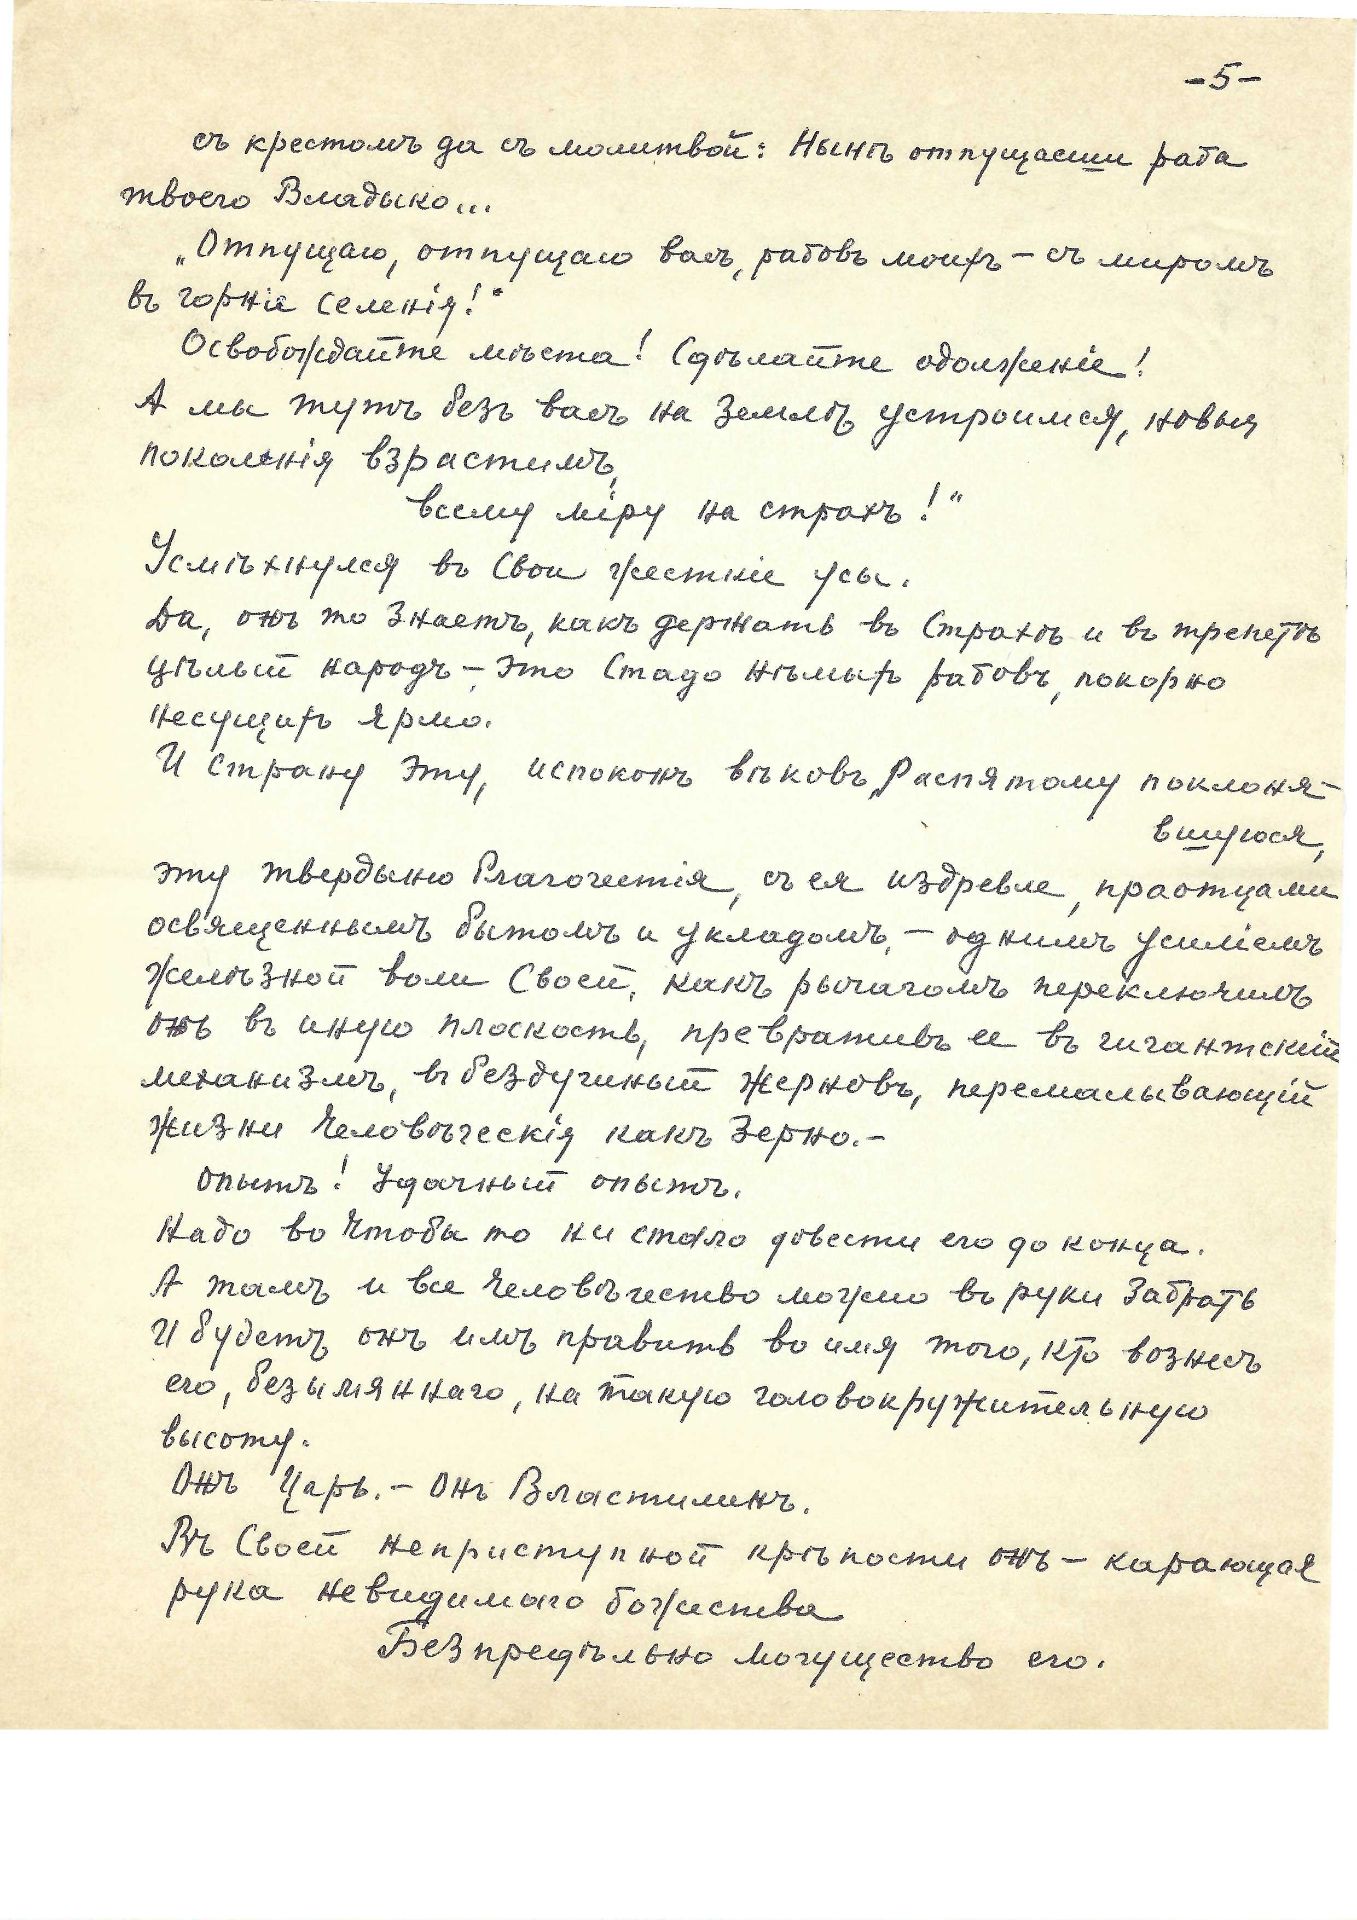 -5-
съ крестомъ да съ молитвой: Нынѣ отпущаеши раба
твоего Владыко...
„Отпущаю, отпущаю васъ, рабовъ моихъ – съ миромъ
въ горніе селенія!“
Освобождайте мѣста! Сдѣлайте одолженіе!
А мы тутъ безъ васъ на землѣ устроимся, новыя
поколенія взрастимъ,
всему міру на страхъ!“
Усмѣхнулся въ свои жесткіе усы.
Да, онъ то знаетъ, какъ держать въ страхѣ и въ трепетѣ
цѣлый народъ – это стадо нѣмыхъ рабовъ, покорно
несущихъ ярмо.
И страну эту, испоконъ вѣковъ, Распятому поклоня-
вшуюся,
эту твердыню благочестія, съ ея издревле, праотцами
освященнымъ бытомъ и укладомъ, – однимъ усиліемъ
желѣзной воли своей, какъ рычагомъ переключилъ
онъ въ иную плоскость, превративъ ее въ гигантскій
механизмъ, въ бездушный жерновъ, перемалывающій
жизни человѣческія какъ зерно.–
Опытъ! Удачный опытъ.
Надо во чтобы то ни стало довести его до конца.
А тамъ и все человѣчество можно въ руки забрать
И будетъ онъ имъ править во имя того, кто вознесъ
его, безымяннаго, на такую головокружительную
высоту.
Онъ Царь.– Онъ Властилинъ.
Въ своей неприступной крѣпости онъ – карающая
рука невидимаго божества
Безпредѣльно могущество его.